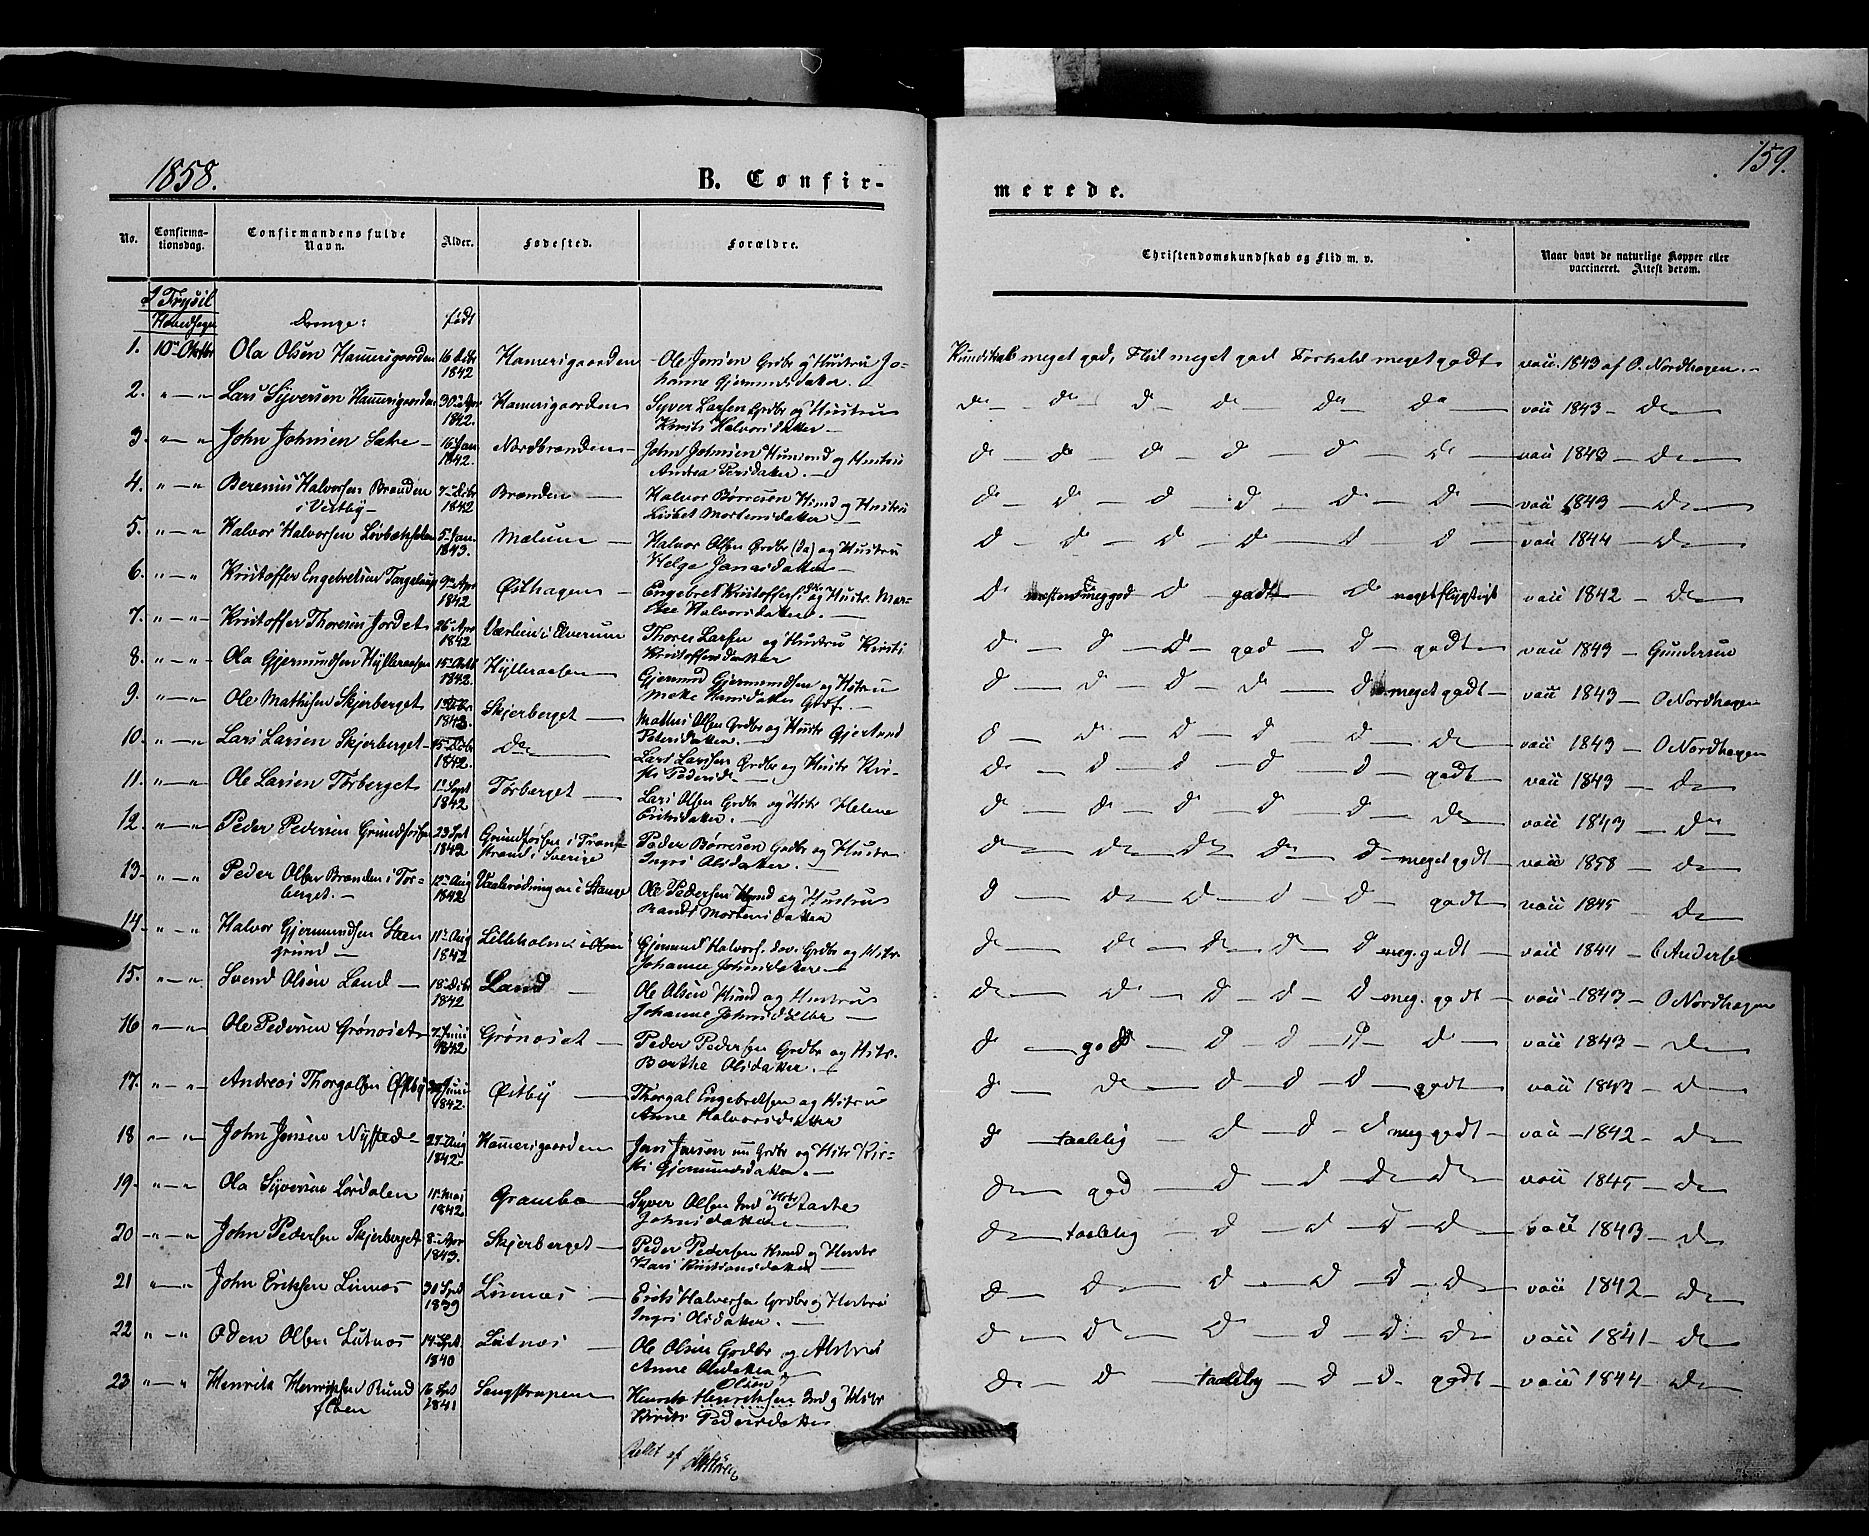 1858.
B. Confir-
merede.
159.
No.
Confirma-
tionsdag.
Confirmandens fulde
Navn.
Alder.
Fødested.
Forældre.
Christendomskundskab og Flid m. v.
Naar havt de naturlige Kopper eller
vaccineret. Attest derom.
I Trysil
Hovedsogn Drenge: født
1. 10de Oktbr Ola Olsen Hamersgaarden 16 1842 Hamersgaarden Ole Jensen Grdbr og Hustru Jo-
hanne Gjermundsdatter.
Kundskab meget god, Flid meget god Forhold meget godt vacc. 1843 af O. Nordhagen.
2. " — " Lars Syversen Hamersgaarden 30 1842. Hamersgaarden Syver Larsen Grdbr og Hustru
Kirsti Halvorsdatter —
do do do do do do vacc 1843 — do
3. " — " John Johnsen Sætre — 16 Jan 1842. Nordbrænden John Johnsen Husmd og Hustru
Andrea Persdatter. —
d — do — d — d — d — do — vacc 1843 — do
4. " — " Berenius Halvorsen Brænden
i Østby — 7 Debr 1842 Brænden — Halvor Børresen Husmd og Hustru
Lisbet Mortensdatter —
d — d — d — d — d — d — vacc 1843 — do
5. " — " Halvor Halvorsen 5 Jan. 1843. Melum — Halvor Olsen Grdbr (do) og Hustru
Helge Jonasdatter —
d — d — d — d — d — d — vacc 1844 — do
6. " — " Kristoffer Engebretsen 9 Apr 1842 Østhagen — Engebret Kristoffers. og Hustr. Mar-
the Halvorsdatter. —
d næsten meg god d — godt — d meget flygtigt vacc 1842 — do
7. " — " Kristoffer Thoresen Jordet 26 Apr 1842 i Elverum Thores Larsen og Hustru Kirsti
Kristoffersdatter
d — d — do — god — d — godt — vacc 1843 — Gundersen
8. " — " Ola Gjermundsen Hylleraasen 15 1842. Hylleraasen — Gjermund Gjermundsen og Hstru
Hansdatter —
d — d — d — d — d meget godt — vacc 1843 — O Nordhagen
9. " — " Ole Mathisen Skjerberget 1 1843 Skjerberget — Mathis Olsen Grdbr og Hustr Gjertrud
Pedersdatter —
d — d — d — d — d — do vacc 1843 — O Nordhagen
10. " — " Lars Larsen Skjerberget 15 Debr 1842. do Lars Larsen Grdbr og Hustr Kir-
sti Pedersd —
d — d — d — d — d — godt vacc 1843 — do
11. " — " Ole Larsen Tørberget 1 Sept 1842 Tørberget — Lars Olsen Grdbr og Hstr Helene
Eriksdatter. —
d — d — d — d — d — do vacc 1843 — do
12. " — " Peder Pedersen Grundforsen 23 Spt 1842 Grundforsen i Tran-
strand i Sverige Peder Børresen Grdbr og Hustr
Ingri Olsdatter. —
d — do — do — do — d — meget godt vacc 1858 — do
13. " — " Peder Olsen Brænden i Tør-
berget. — 12 Aug 1842 i Stange Ole Pedersen Husmd og Hustru
Randi Mortensdatter
d — do — d — d — d — godt vacc 1845 — do
14. " — " Halvor Gjermundsen Sten
grund — 11 Aug 1842 Lilleholmen i Gjermund Halvors. Grdbr og Hstr
Johanne Johnsdatter —
d — do — do — d — d meg. godt — vacc 1844 — C Anderse
15. " — " Svend Olsen Land — 18 Debr 1842 Land — Ole Olsen Husmd og Hustru
Johanne Johnsdatter —
do — d — d — d — d meg. godt — vacc 1843 — O Nordhagen
16. " — " Ole Pedersen Grønoset 7 Juni 1842 Grønoset — Peder Pedersen Grdbr og Hstr.
Berthe Olsdatter. —
d — god — d — d — d — d — vacc 1843 — do
17. " — " Andreas Thorgalsen Østby Juni 1842. Østby — Thorgal Engebretsen og Hstru
Anne Halvorsdatter
d — do — d — d — d — godt — vacc 1843 — do
18 " — " John Jensen Nysted 27 Aug 1842 Hamersgaarden Jens Jensen nu Grdbr og Hstr Kir-
sti Gjermundsdatter. —
d — taalelig — d — d — d meg godt — vacc — 1842 — do
19. " — " Ola Syversen Lørdalen 11 Mai 1842 Grambo Syver Olsen Ind og Hstr Marthe
Johnsdatter —
do — god — d — d — do — do — vacc 1845 — do
20 " — " John Pedersen Skjerberget 8 Apr 1843. Skjerberget — Peder Pedersen Husmd og Hustr
Kari Kristiansdatter —
do — taalelig — d — d — d — do — vacc 1843 — do
21 " — " John Eriksen Linnes 30 Spt 1839 Linnes — Erik Halvorsen Grdbr og Hustru
Ingri Olsdatter. —
do — do — d — d — d — do — vacc 1842 — do
22 " — " Oden Olsen Lutnes 14 Spt 1840 Lutnes — Ole Olsen Grdbr og Hstru
Anne Olsdatter
d — do — do — d — d — do — vacc 1841 — do
23 " — " Henrik Henriksen Rund
floen 16 Spt 1841 Langstrupen Olsen
Henrik Henriksen Ind og Hstr
Kirsti Pedersdatter
do — d — taalelig — d — d. godt — vacc 1844 — do